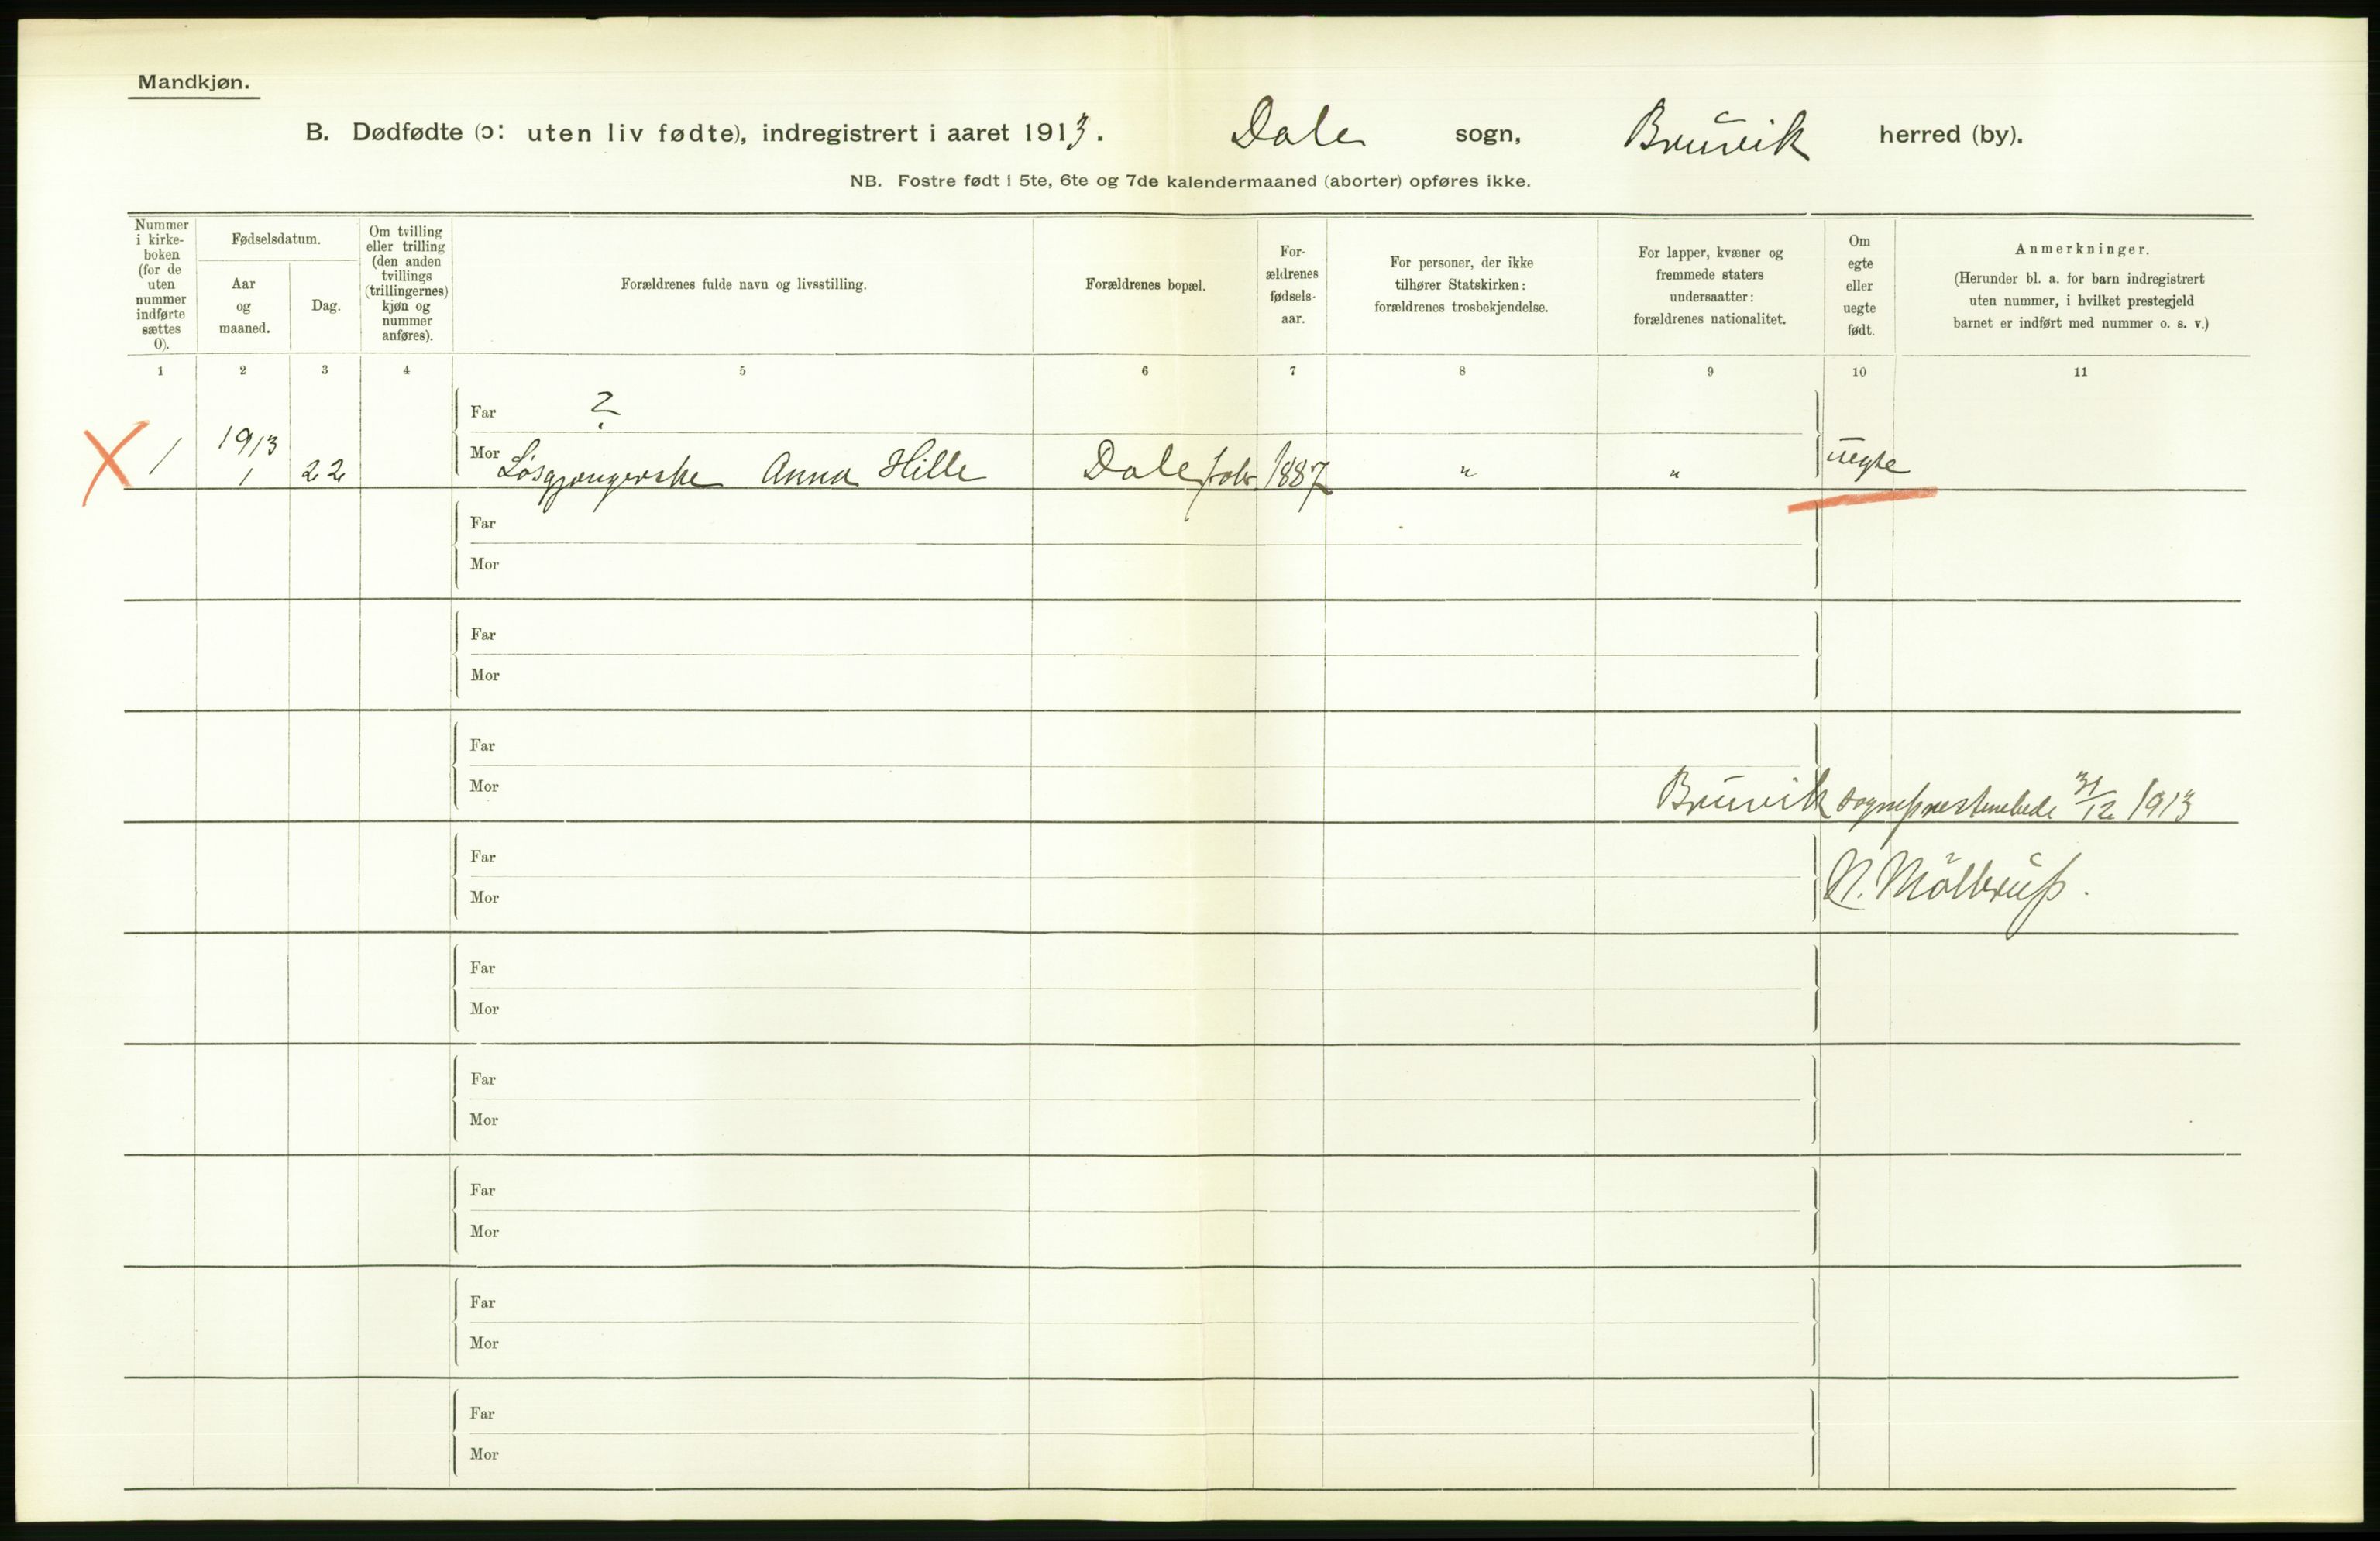 Mandkjøn.
B. Dødfødte (ɔ: uten liv fødte), indregistrert i aaret 1913. Dale sogn, Bruvik herred (by).
NB. Fostre født i 5te, 6te og 7de kalendermaaned (aborter) opføres ikke.
Nummer i kirke-boken (for de uten nummer indførte sættes 0).
Fødselsdatum.
Aar og maaned.
Dag.
Om tvilling eller trilling (den anden tvillings (trillingernes) kjøn og nummer anføres).
Forældrenes fulde navn og livsstilling.
Forældrenes bopæl.
For-ældrenes fødsels-aar.
For personer, der ikke tilhører Statskirken: forældrenes trosbekjendelse.
For lapper, kvæner og fremmede staters undersaatter: forældrenes nationalitet.
Om egte eller uegte født.
Anmerkninger.
(Herunder bl. a. for barn indregistrert uten nummer, i hvilket prestegjeld barnet er indført med nummer o. s. v.)
1 2 3 4 5 6 7 8 9 10 11
Far ?
1 1913 1 22 Mor Løsgjængerske Anna Hille Dale 1887 " " uegte
Far
Mor
Far
Mor
Far
Mor
Bruvik sogneprestembede 31/12 1913
Far
Mor
Far
Mor
Far
Mor
Far
Mor
Far
Mor
Far
Mor